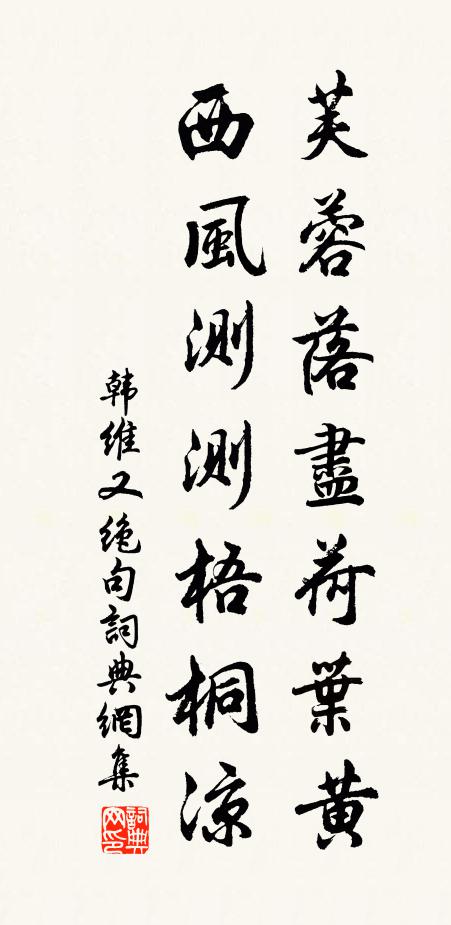 芙蓉落盡荷葉黄
西風測測梧桐凉
韩维又绝句詞典網集
詞典网印